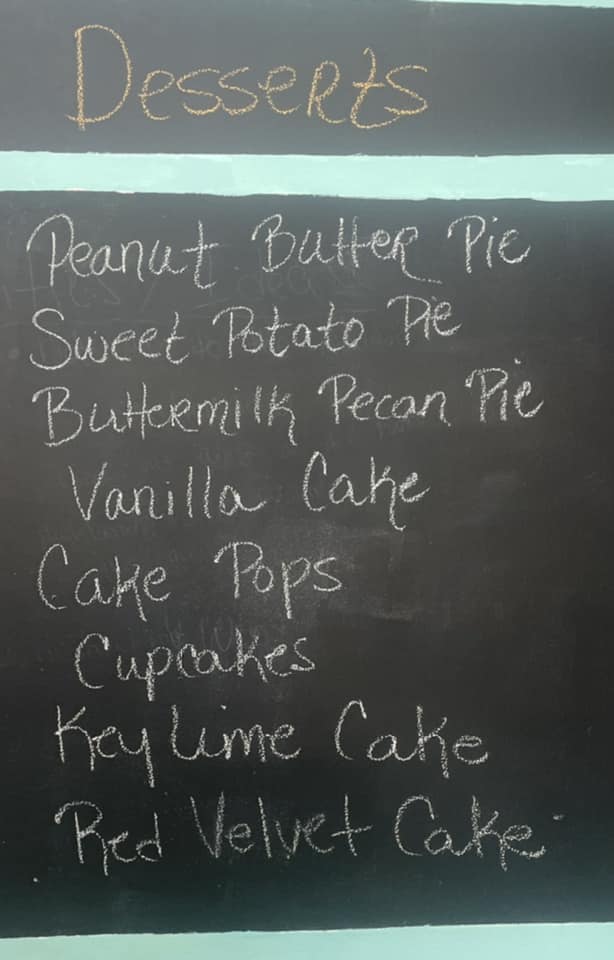 Desserts
Peanut Butter Pie
Sweet Potato Pie
Buttermilk Pecan Pie
Vanilla Cake
Cake Pops
Cupcakes
Key Lime Cake
Red Velvet Cake